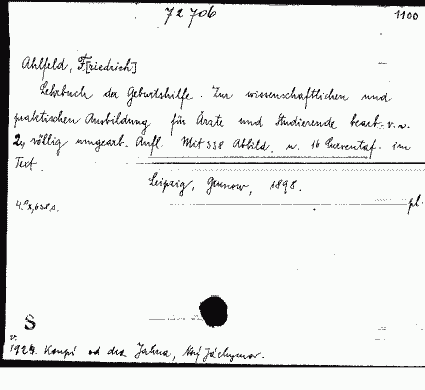 72706
1100
Ahlfeld, F[riedrich]
Lehrbuch der Geburtshilfe. Zur wissenschaftlichen und
praktischen Ausbildung für Ärzte und Studierende bearb. v. a.
2., völlig umgearb. Aufl. Mit 338 Abbild. u. 16 Curventaf. im
Text.
Leipzig, Grunow, 1898.
4.° X, 658 s.
pl.
S
v.
1924. Koupí od dra Jahna,